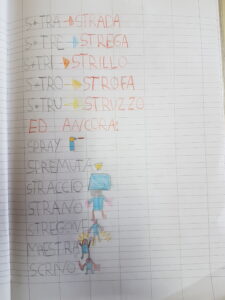 S+TRA → STRADA
S+TRE → STREGA
S+TRI → STRILLO
S+TRO → STROFA
S+TRU → STRUZZO
ED ANCORA:
SPRAY
SPREMUTA
STRACCIO
STRANO
STREGONE
MAESTRA
SCRIVO